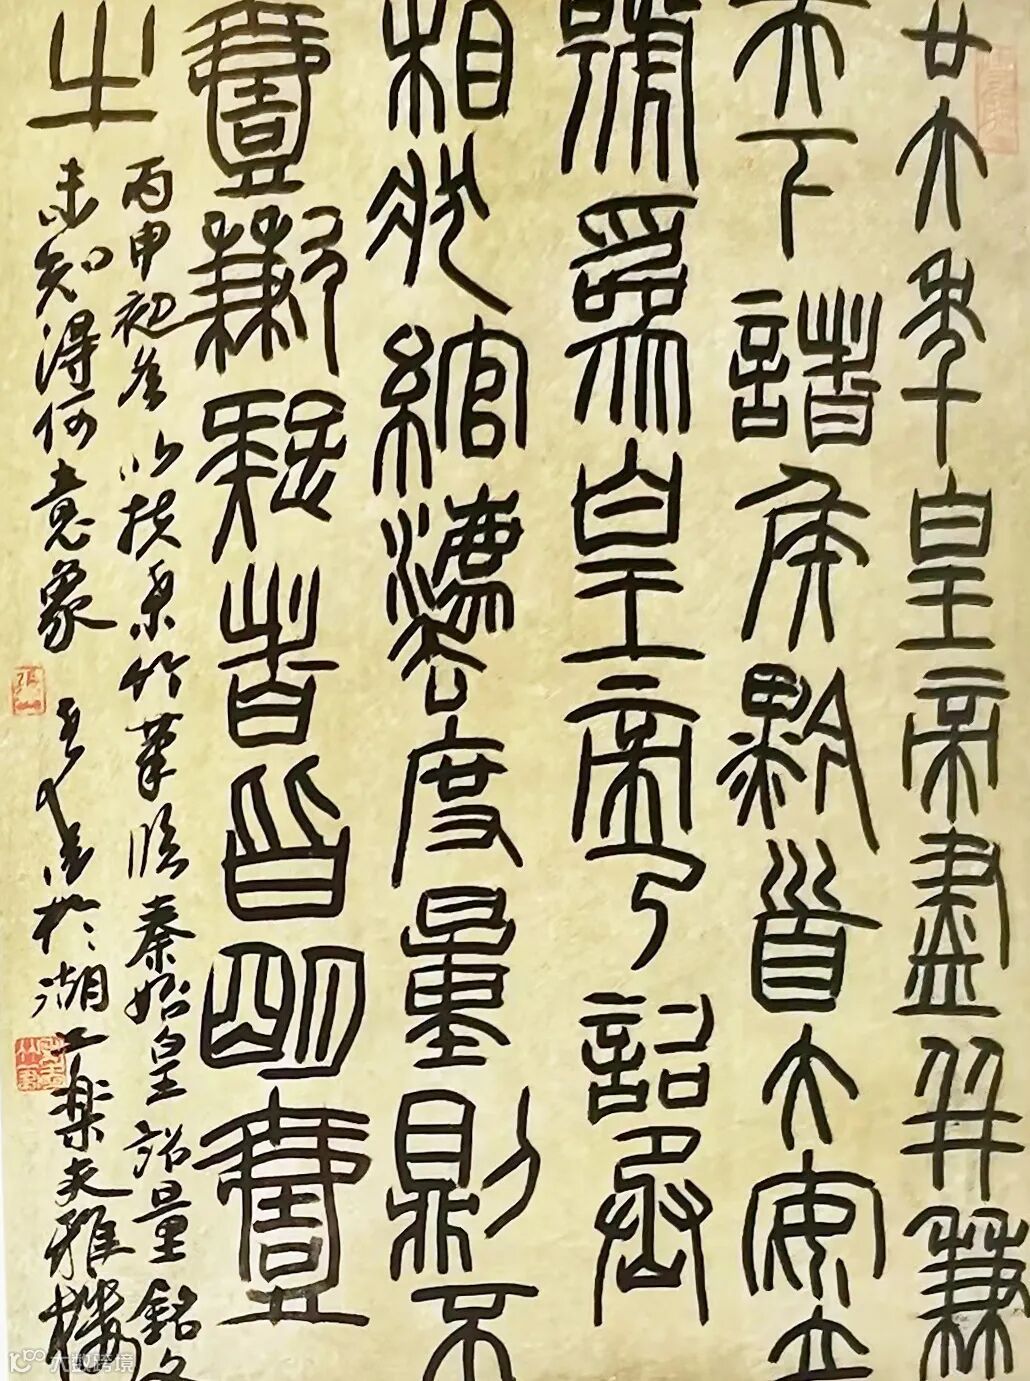 廿六年皇帝盡并兼
天下諸侯黔首大安立
號爲皇帝乃詔丞
相狀綰灋度量則不
壹歉疑者皆明壹
之
丙申初冬以扶桑竹筆臨秦始皇詔量銘文
未知得何意象 於湖上樂夫雅樓
大数跨境